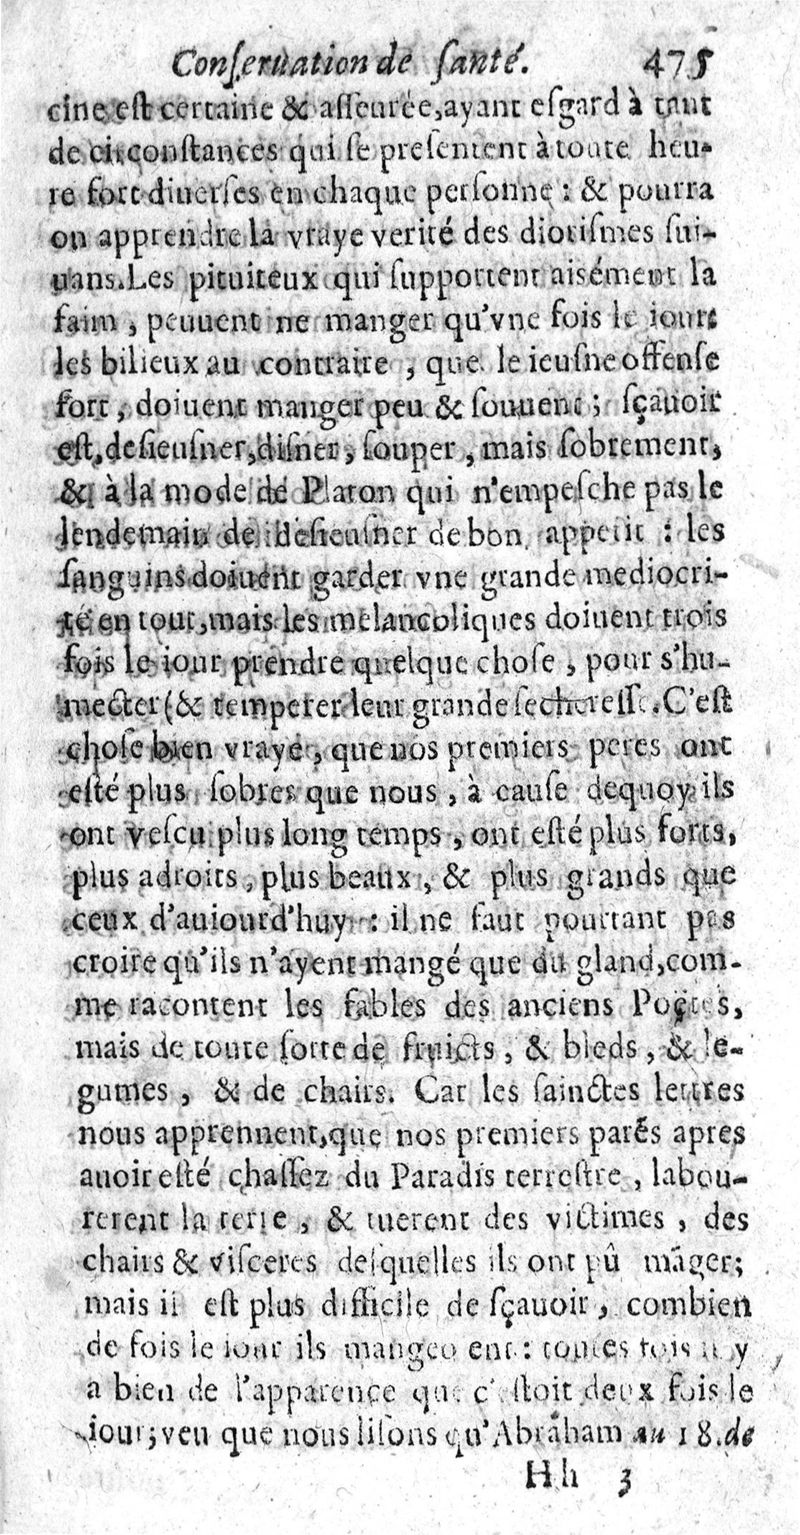 Conſeruation de ſanté. 475
cine eſt certaine & aſſeurée, ayant eſgard à tant
de circonſtances qui ſe preſentent à toute heu-
re fort diuerſes en chaque perſonne : & pourra
on apprendre la vraye verité des diotiſmes ſui-
uans. Les pituiteux qui ſupportent aisément la
faim, peuuent ne manger qu'vne fois le iour:
les bilieux au contraire, que le ieuſne offenſe
fort, doiuent manger peu & ſouuent; ſçauoir
eſt, deſieuſner, diſner, ſouper, mais ſobrement,
& à la mode de Platon qui n'empeſche pas le
lendemain de deſieuſner de bon appetit : les
ſanguins doiuent garder vne grande mediocri-
té en tout, mais les melancoliques doiuent trois
fois le iour prendre quelque choſe, pour s'hu-
mecter (& temperer leur grande ſechereſſe. C'eſt
choſe bien vraye, que nos premiers peres ont
eſté plus ſobres que nous, à cauſe dequoy ils
ont veſcu plus long temps, ont eſté plus forts,
plus adroits, plus beaux, & plus grands que
ceux d'auiourd'huy : il ne faut pourtant pas
croire qu'ils n'ayent mangé que du gland, com-
me racontent les fables des anciens Poëtes,
mais de toute ſorte de fruicts, & bleds, & le-
gumes, & de chairs. Car les ſainctes lettres
nous apprennent, que nos premiers parés apres
auoir eſté chaſſez du Paradis terreſtre, labou-
rerent la terre, & tuerent des victimes, des
chairs & viſceres deſquelles ils ont pû māger;
mais il eſt plus difficile de ſçauoir, combien
de fois le iour ils mangeoient : toutes fois il y
a bien de l'apparence que c'eſtoit deux fois le
iour; veu que nous liſons qu'Abraham au 18. de
Hh 3